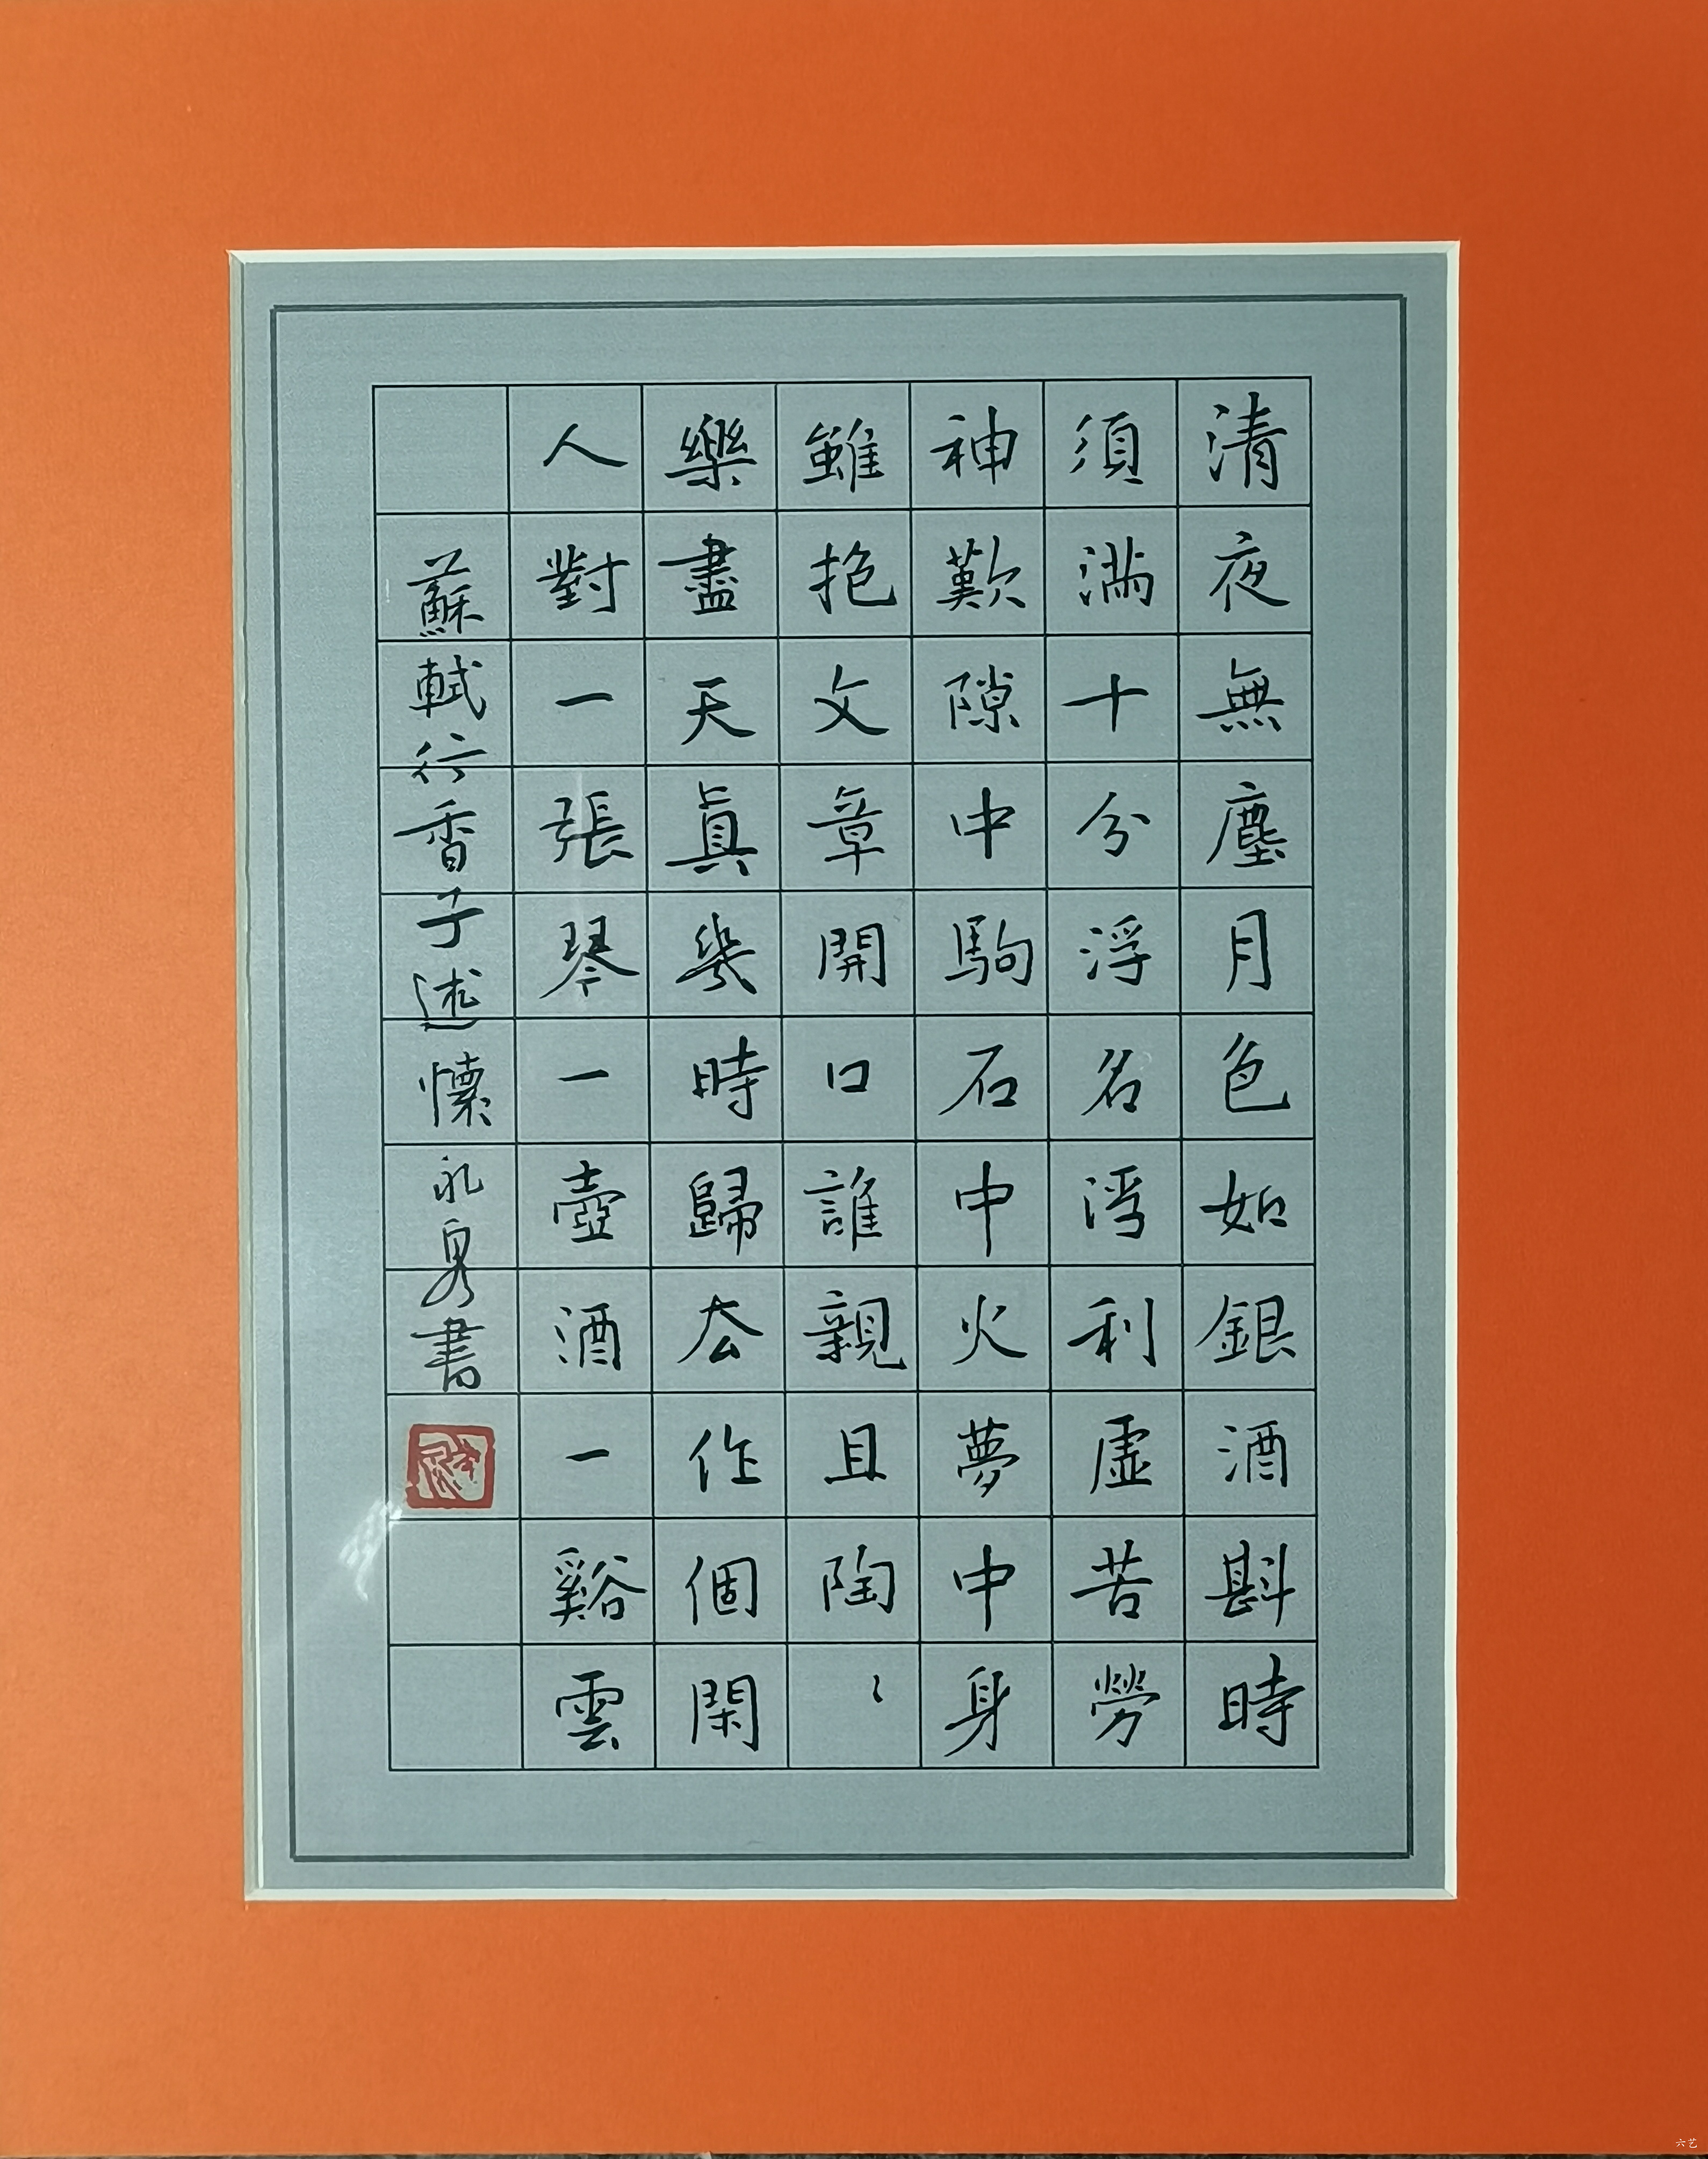 清夜無塵月色如銀酒斟時
須滿十分浮名浮利虛苦勞
神歎隙中駒石中火夢中身
雖抱文章開口誰親且陶〻
樂盡天真幾時歸去作個閑
人對一張琴一壺酒一谿雲
蘇軾行香子述懷永泉書
六艺